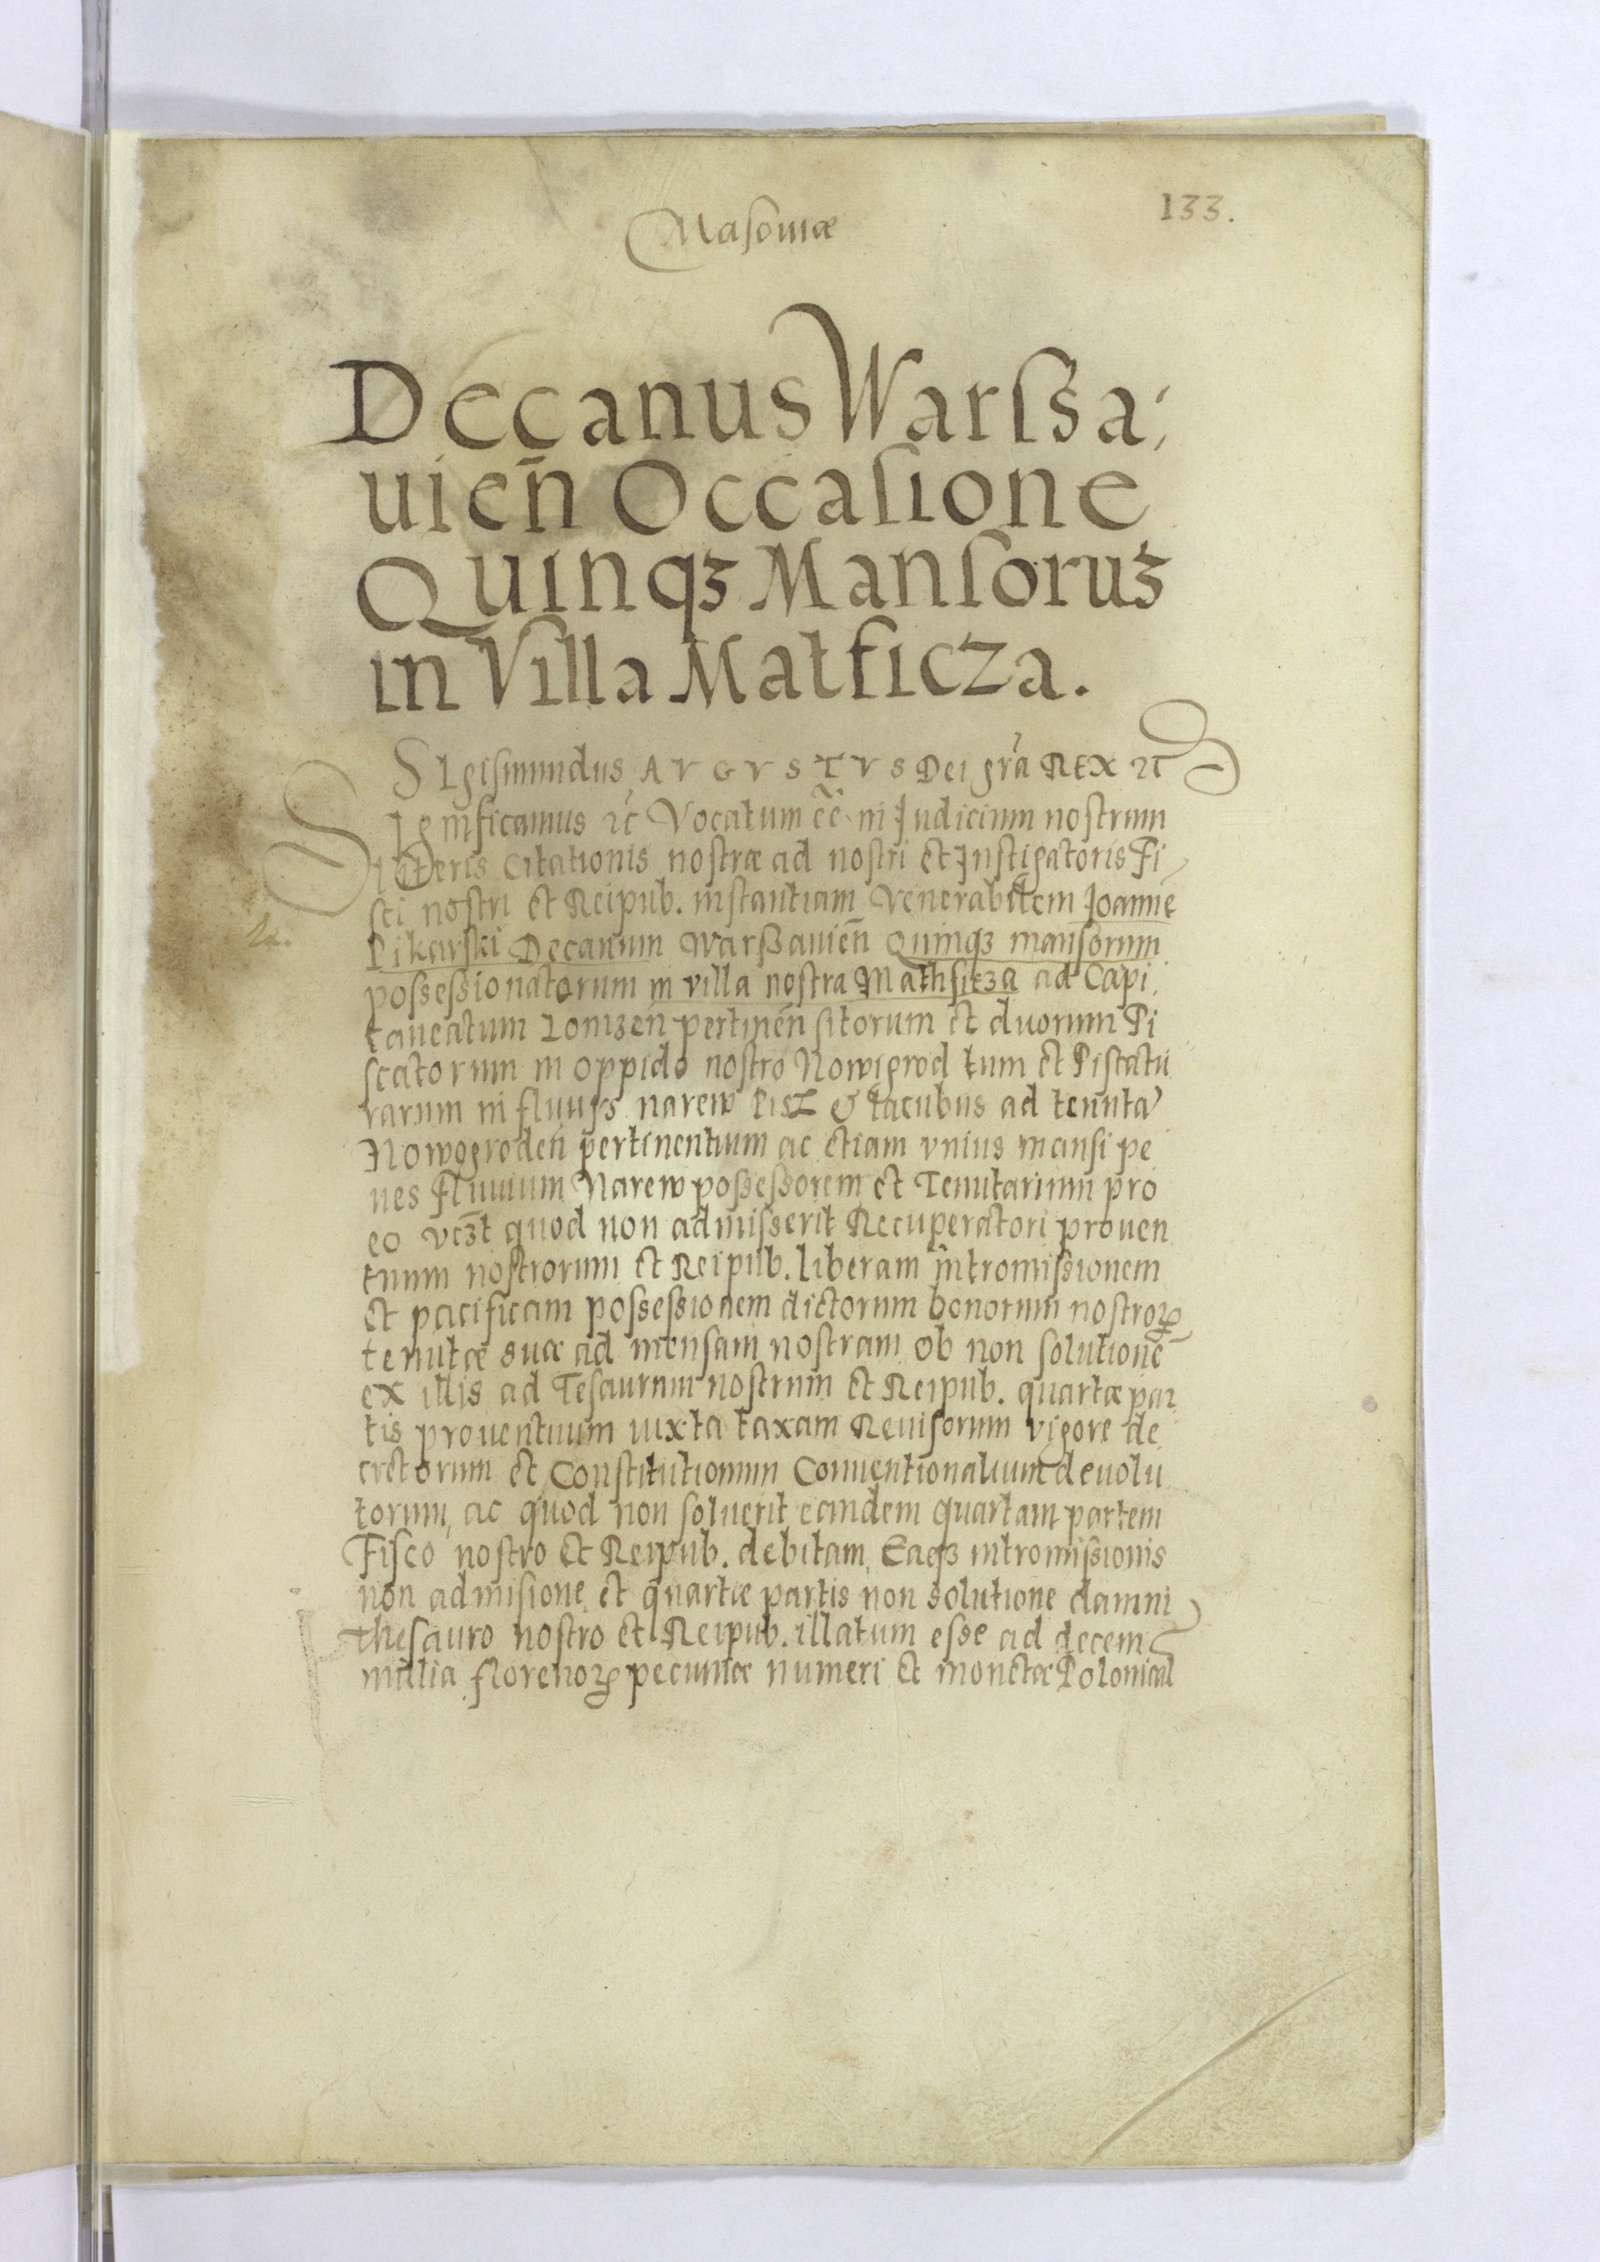 Masoviæ
133.
Decanus Warsza,
uien̄ Occasione
Quinqꝫ Mansoruꝫ
in Villa Matficza.
SIgismundus AVGVSTVS Dei gr̃a REX ꝛc̃
SIgnificamus ꝛc̃ Vocatum eē in Judicium nostrum
literis Citationis nostræ ad nostri et Instigatoris Fi
sci nostri et Reipub. instantiam Venerabilem Joannē
Pikarski Decanum Warszauien̄ Quinqꝫ mansorum
possessionatorum in villa nostra Mathficza ad Capi
taneatum Lomzen̄ pertinen̄ sitorum et duorum Pi
scatorum in oppido nostro Nowigrod tum et Piscatu
rarum in fluuijs narew & lacubus ad tenuta
Nowogroden̄ pertinentium ac etiam vnius mansi pe
nes Fluuium Narew possessorem et Tenutarium pro
eo vcꝫt quod non admisserit Recuperatori prouen
tuum nostrorum et Reipub. liberam intromissionem
et pacificam possessionem dictorum bonorum nostroꝝ
tenutæ suæ ad mensam nostram ob non solutionē
ex illis ad Tesaurum nostrum et Reipub. quartæ par
tis prouentuum iuxta taxam Reuisorum vigore de
cretorum et Constitutionum Conuentionalium deuolu
torum, ac quod non soluerit eandem quartam partem
Fisco nostro et Reipub. debitam, Eaqꝫ intromissionis
non admisione et quartæ partis non solutione damni
thesauro nostro et Reipub. illatum esse ad decem
millia florenoꝝ pecuniæ numeri et monetæ Polonical